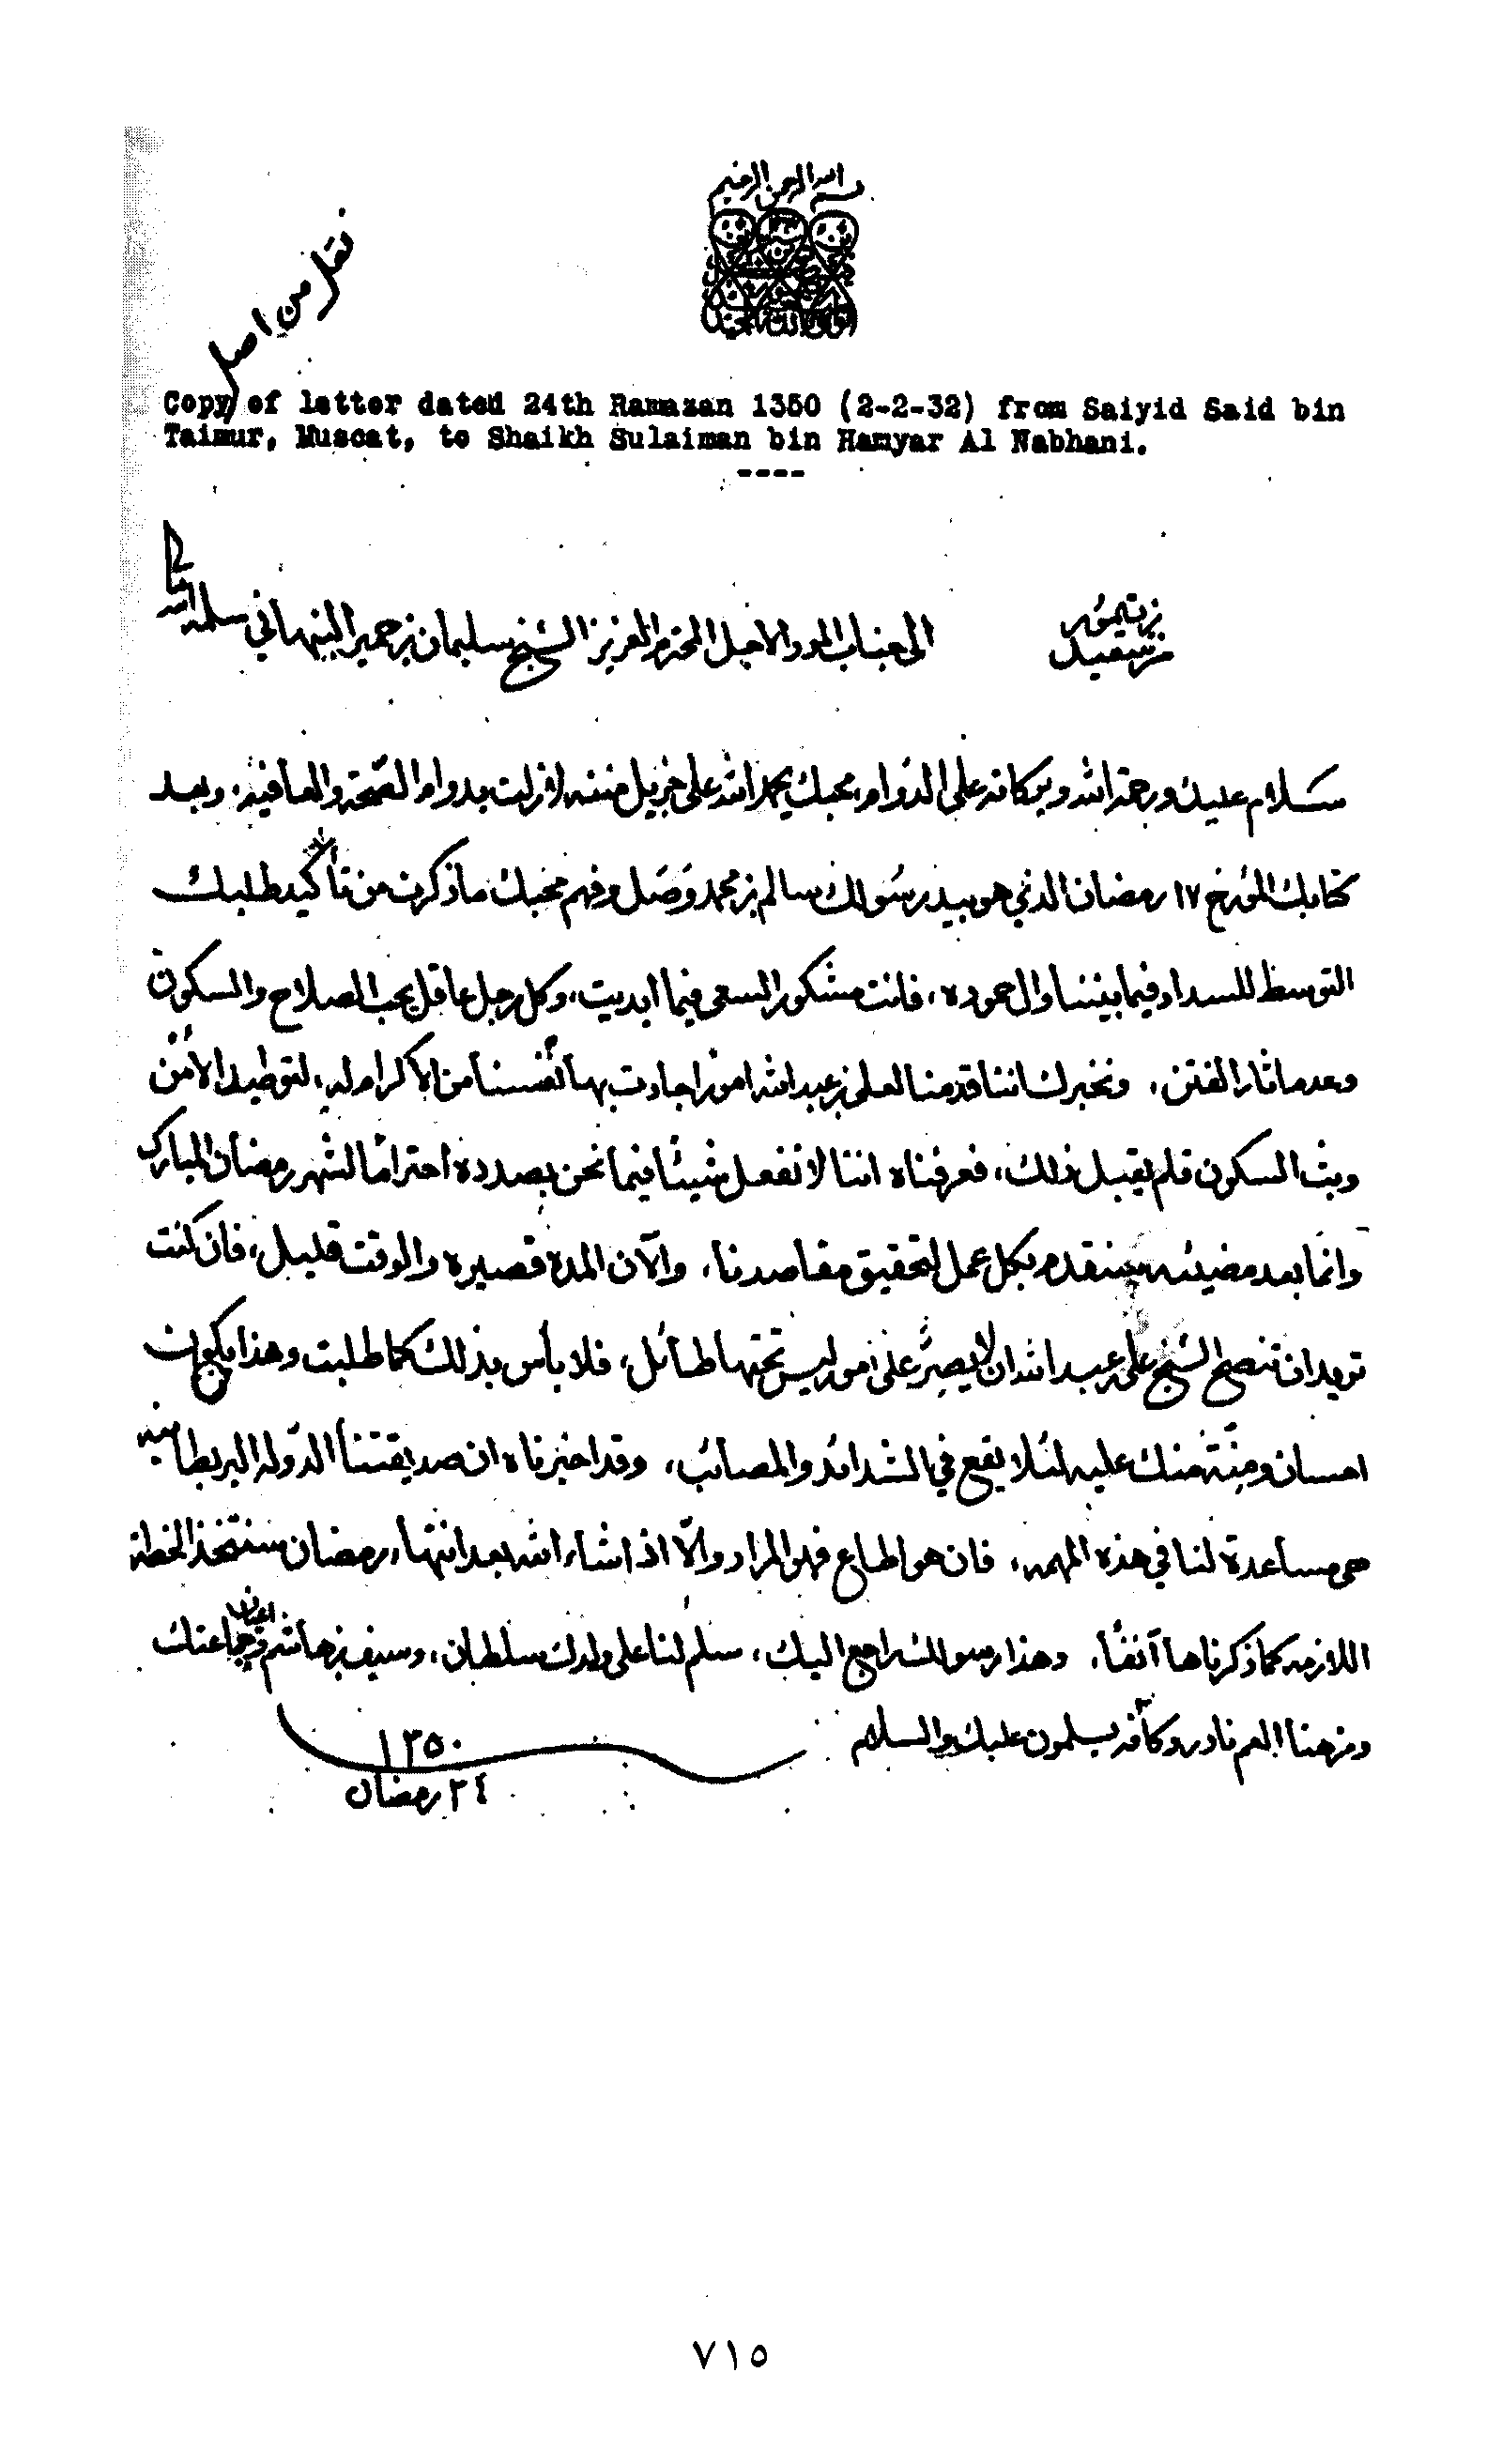 بسم الله الرحمن الرحيم
نقل من اصل
Copy of letter dated 24th Ramazan 1350 (2-2-32) from Saiyid Said bin
Taimur, Muscat, to Shaikh Sulaiman bin Hamyar Al Nabhani.
----
من سعيد بن تيمور
الى جناب المود الاجل المحترم العزيز الشيخ سليمان بن حمير النبهاني سلمه الله
سلام عليك ورحمة الله وبركاته على الدوام، محبك يحمد الله على جزيل مننه لا زلت بدوام الصحة والعافية، وبعد
كتابك المؤرخ ١٧ رمضان الذي هو بيد رسولك سالم بن محمد وَصَل وفهم محبك ما ذكرت من تأكيد طلبك
التوسط للسداد فيما بيننا وال حموده، فانت مشكور السعي فيما ابديت، وكل رجل عاقل يحب الصلاح والسكون
وعدم اثار الفتن، ونخبرك اننا قدمنا لعلي بن عبدالله امورًا جادت بها أنفسنا من الاكرام له، لتوطيد الأمن
وبث السكون فلم يقبل ذلك، فعرفناه اننا لا نفعل شيئًا فيما نحن بصدده احترامًا لشهر رمضان المبارك
وانما بعد مضيئه سنتقدم بكل عمل لتحقيق مقاصدنا، والآن المدة قصيره والوقت قليل، فان كنت
تريد ان تنصح الشيخ علي بن عبدالله ان لا يصرّ على امور ليس تحتها طائل، فلا بأس بذلك كما طلبت وهذا يكون من
احسان ومِنّة منك عليه لئلا يقع في الشدائد والمصائب، وقد اخبرناه ان صديقتنا الدولة البريطانيه
هي مساعدة لنا في هذه المهمه، فان هو اطاع فهو المراد والّا اذا شاء الله بعد انتهاء رمضان سنتخذ الخطة
اللازمه كما ذكرناها آنفًا، وهذا رسولك راجع اليك، سلم لنا على ولدك سلطان، وسيف بن هاشم واعيان جماعتك
ومن هنا العم نادر وكآفه يسلمون عليك والسلام
١٣٥٠
٢٤ رمضان
٧١٥